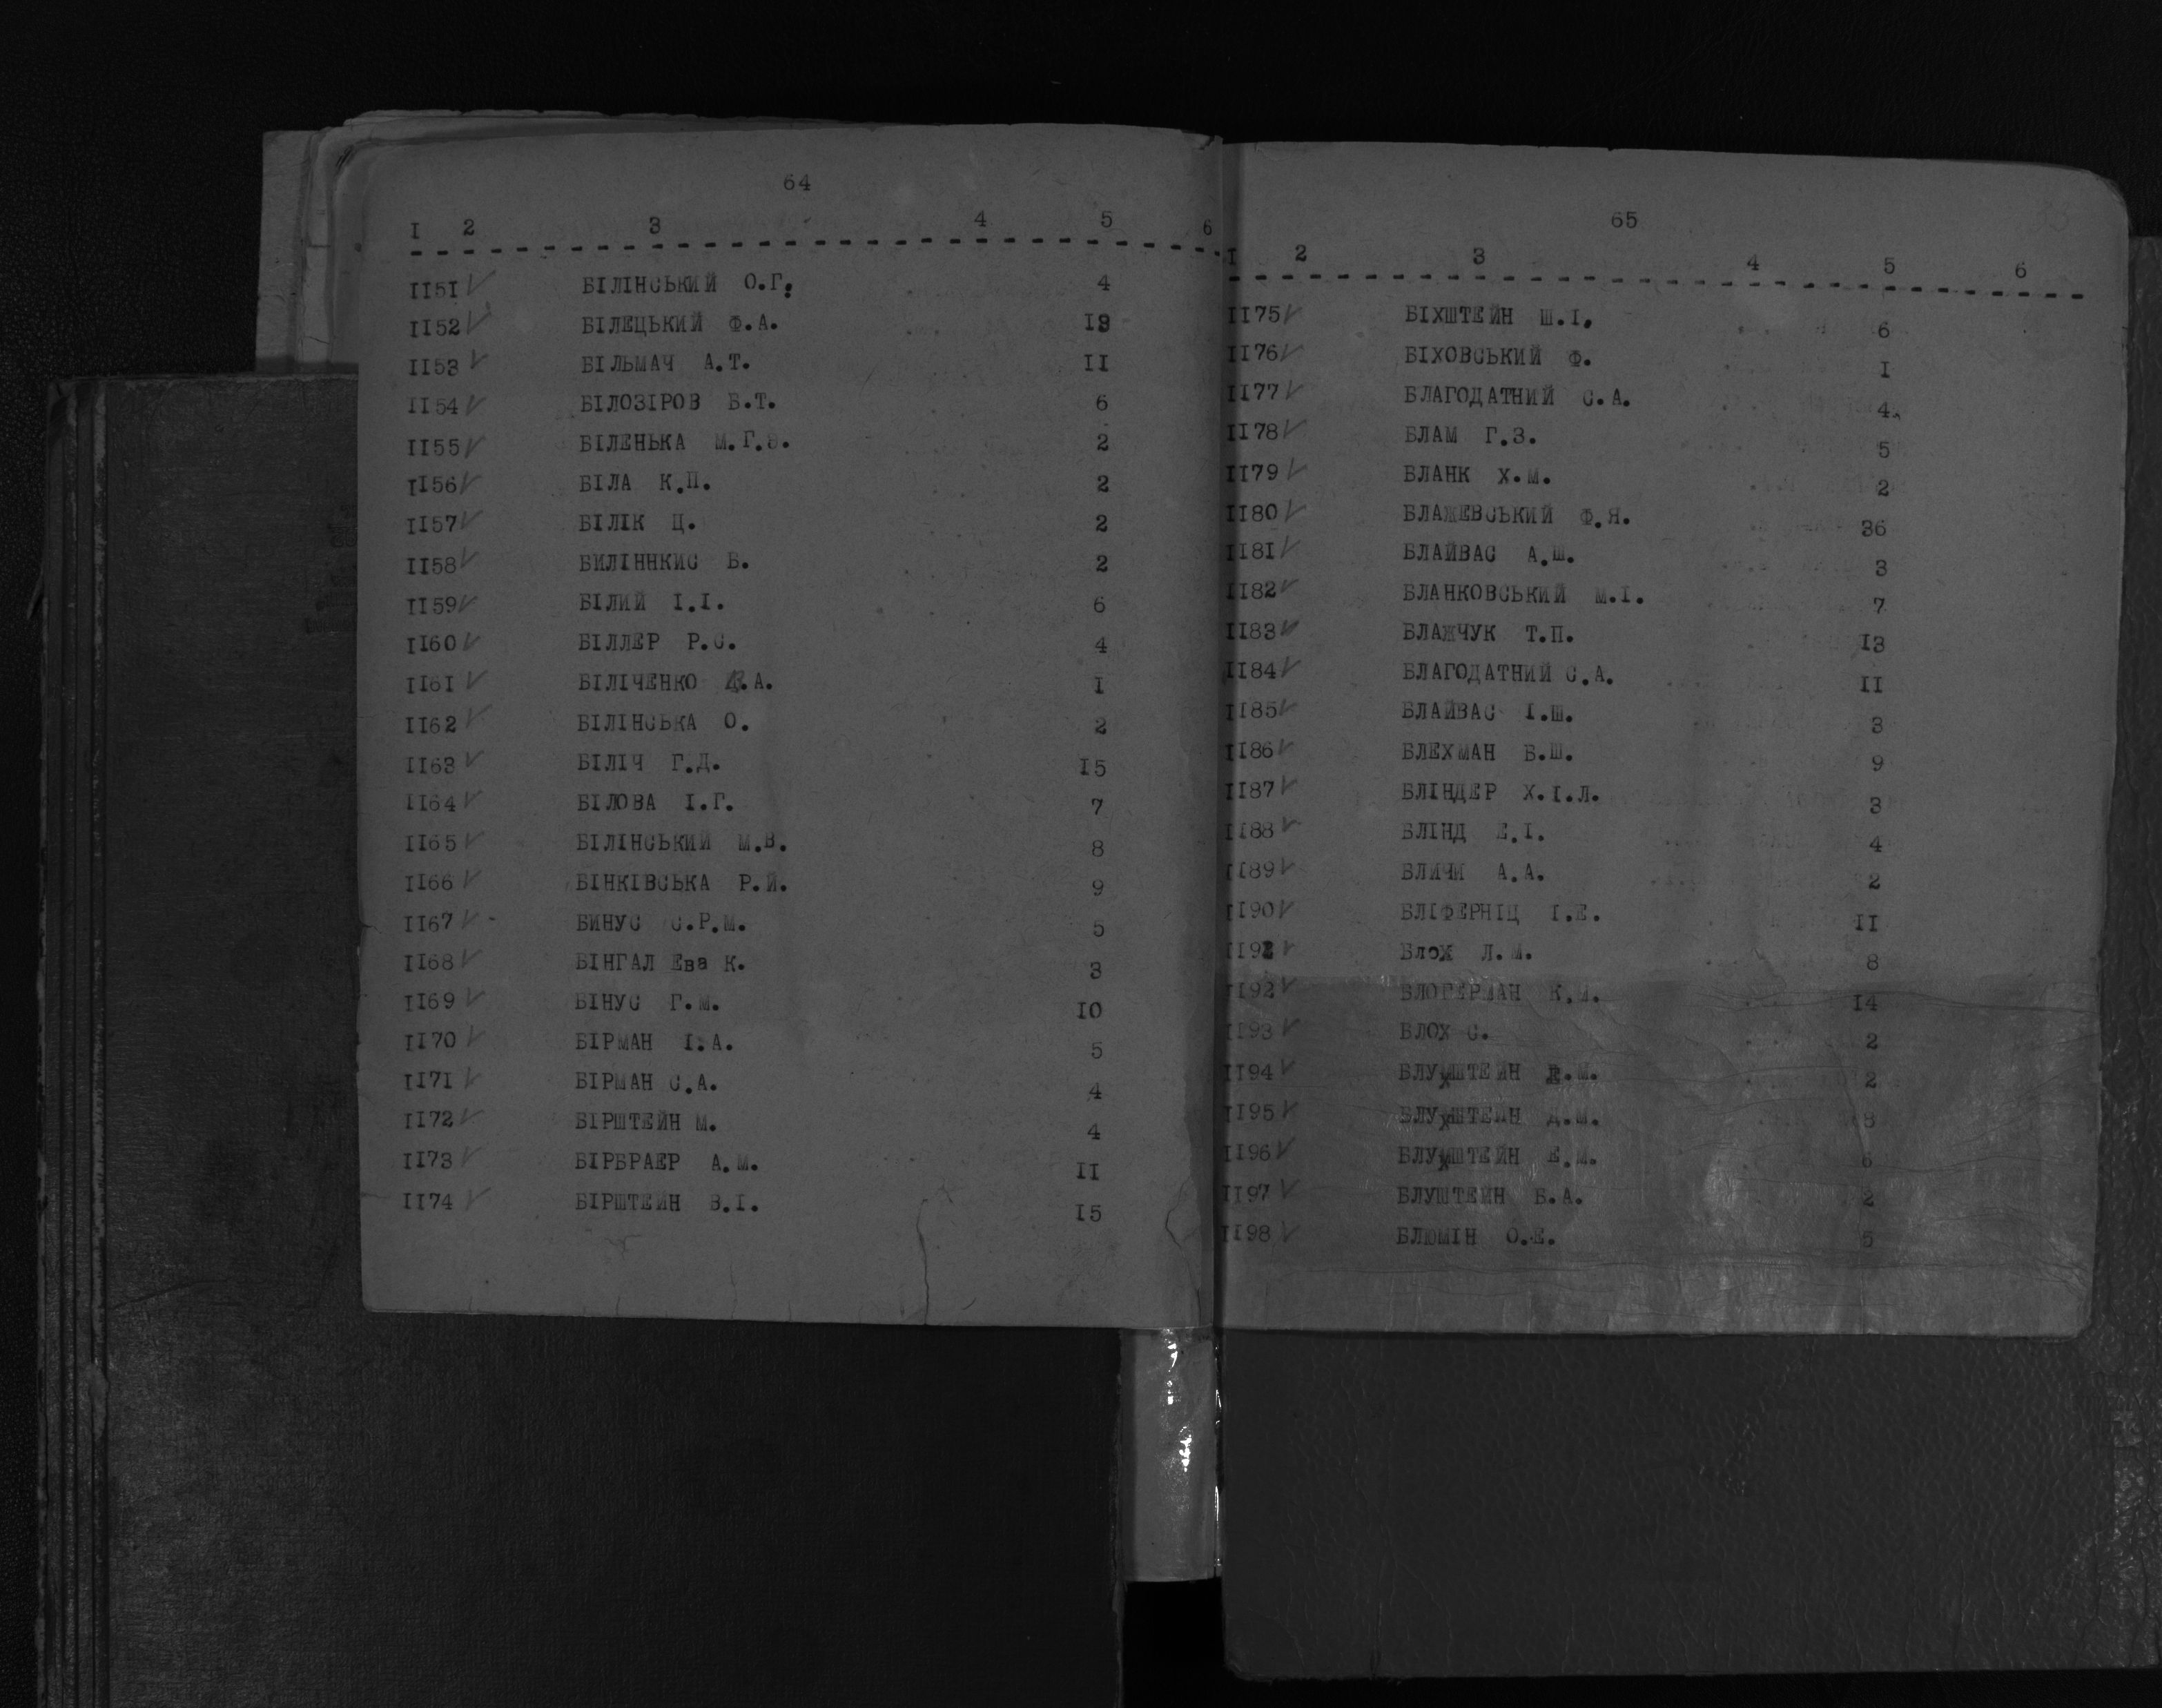 64
I 2 3 4 5 6
II51 БІЛІНСЬКИЙ О.Г. 4
II52 БІЛЕЦЬКИЙ Ф.А. I9
II53 БІЛЬМАЧ А.Т. II
II54 БІЛОЗІРОВ Б.Т. 6
II55 БІЛЕНЬКА М.Г.З. 2
II56 БІЛА К.П. 2
II57 БІЛІК Ц. 2
II58 БИЛІННКИС Б. 2
II59 БІЛИЙ І.І. 6
II60 БІЛЛЕР Р.С. 4
II61 БІЛІЧЕНКО .А. I
II62 БІЛІНСЬКА О. 2
II63 БІЛІЧ Г.Д. I5
II64 БІЛОВА І.Г. 7
II65 БІЛІНСЬКИЙ М.В. 8
II66 БІНКІВСЬКА Р.Й. 9
II67 БИНУС С.Р.М. 5
II68 БІНГАЛ Ева К. 3
II69 БІНУС Г.М. I0
II70 БІРМАН І.А. 5
II71 БІРМАН С.А. 4
II72 БІРШТЕЙН М. 4
II73 БІРБРАЕР А.М. II
II74 БІРШТЕЙН В.І. I5
65
I 2 3 4 5 6
II75 БІХШТЕЙН Ш.І. 6
II76 БІХОВСЬКИЙ Ф. I
II77 БЛАГОДАТНИЙ С.А. 4
II78 БЛАМ Г.З. 5
II79 БЛАНК Х.М. 2
II80 БЛАЖЕВСЬКИЙ Ф.Я. 36
II81 БЛАЙВАС А.Ш. 3
II82 БЛАНКОВСЬКИЙ М.І. 7
II83 БЛАЖЧУК Т.П. I3
II84 БЛАГОДАТНИЙ С.А. II
II85 БЛАЙВАС І.Ш. 3
II86 БЛЕХМАН Б.Ш. 9
II87 БЛІНДЕР Х.І.Л. 3
II88 БЛІНД Е.І. 4
II89 БЛИЧИ А.А. 2
II90 БЛІФЕРНІЦ І.Е. II
Блох Л.М. 8
II92 БЛОГЕРМАН К.И. I4
II93 БЛОХ С. 2
II94 БЛУМШТЕЙН .М. 2
II95 БЛУМШТЕЙН Д.М. 8
II96 БЛУМШТЕЙН Е.М. 6
II97 БЛУШТЕЙН Б.А. 2
II98 БЛЮМІН О.Е. 5